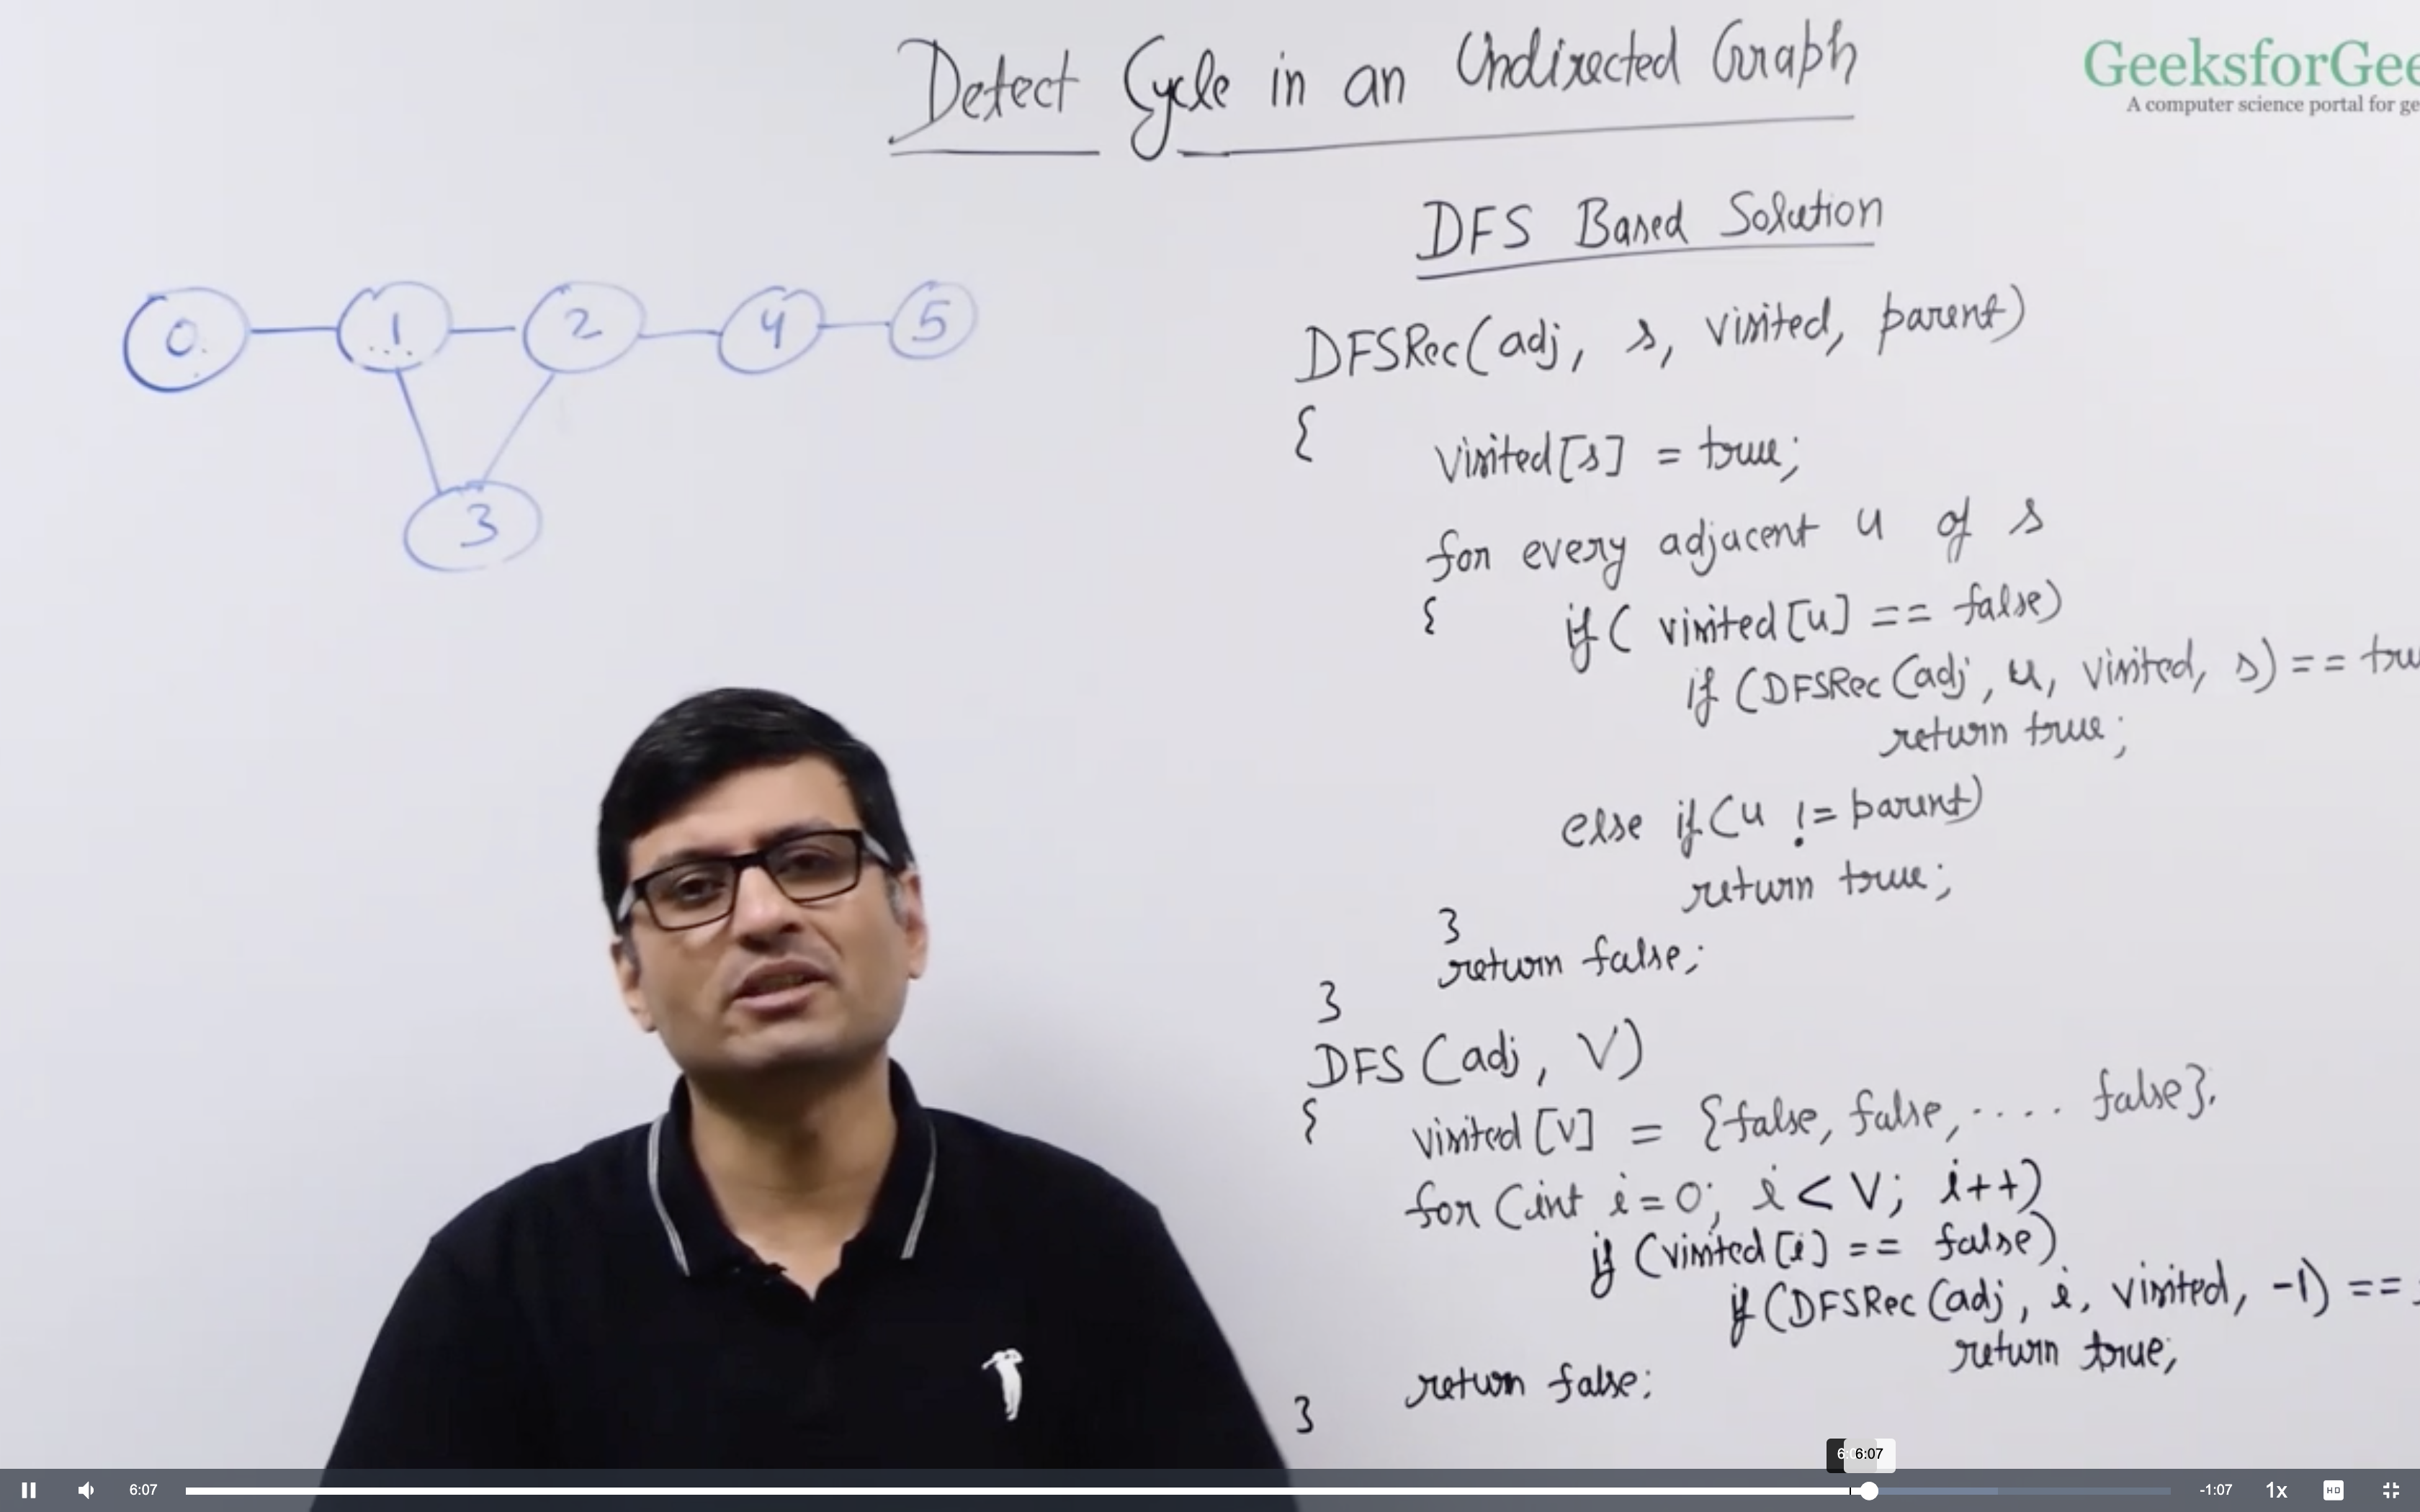 Detect Cycle in an Undirected Graph
GeeksforGee
A computer science portal for ge
DFS Based Solution
0 1 2 4 5
3
DFSRec(adj, s, visited, parent)
{
visited[s] = true;
for every adjacent u of s
{ if( visited[u] == false)
if (DFSRec(adj, u, visited, s) == tru
return true;
else if(u != parent)
return true;
}
return false;
}
DFS(adj, V)
{
visited[v] = {false, false, .... false};
for (int i=0; i < V; i++)
if (visited[i] == false)
if (DFSRec(adj, i, visited, -1) ==
return true;
return false;
}
6:07
6:07 -1:07 1x HD